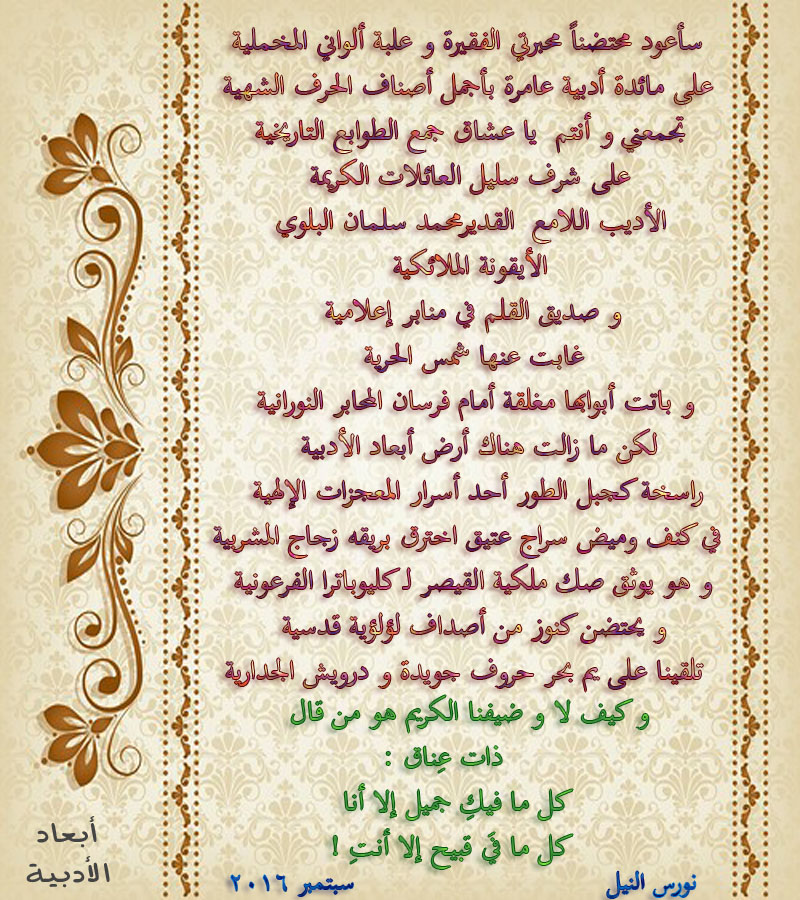 سأعود محتضناً محبرتي الفقيرة و علبة ألواني المخملية
على مائدة أدبية عامرة بأجمل أصناف الحرف الشهية
تجمعني و أنتم يا عشاق جمع الطوابع التاريخية
على شرف سليل العائلات الكريمة
الأديب اللامع القديرمحمد سلمان البلوي
الأيقونة الملائكية
و صديق القلم في منابر إعلامية
غابت عنها شمس الحرية
و باتت أبوابها مغلقة أمام فرسان المحابر النورانية
لكن ما زالت هناك أرض أبعاد الأدبية
راسخة كجبل الطور أحد أسرار المعجزات الإلهية
في كنف وميض سراج عتيق اخترق بريقه زجاج المشربية
و هو يوثق صك ملكية القيصر لـ كليوباترا الفرعونية
و يحتضن كنوز من أصداف لؤلؤية قدسية
تلقينا على يم بحر حروف جويدة و درويش الجدارية
و كيف لا و ضيفنا الكريم هو من قال
ذات عِناق :
كل ما فيكِ جميل إلا أنا
كل ما فيَّ قبيح إلا أنتِ !
نورس النيل
سبتمبر ٢٠١٦
أبعاد
الأدبية